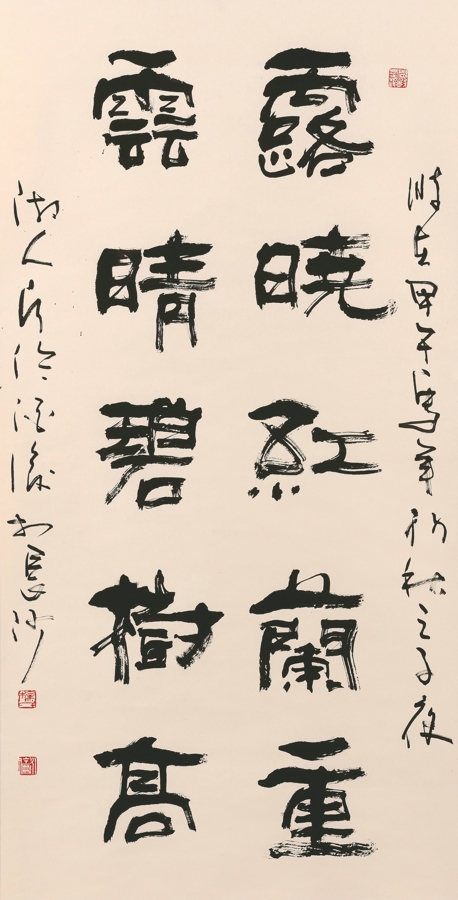 時在甲午馬年初秋之子夜
露曉紅蘭重
雲晴碧樹高
湖人酒後於長沙